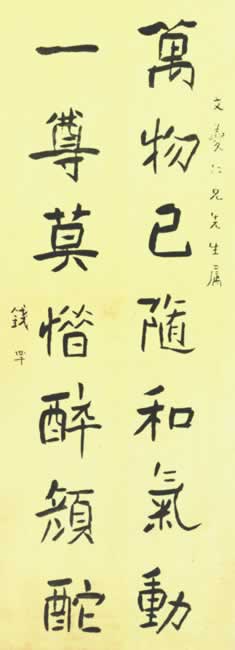 文夔仁兄先生屬
萬物已隨和氣動
一罇莫惜醉顏酡
錢罕